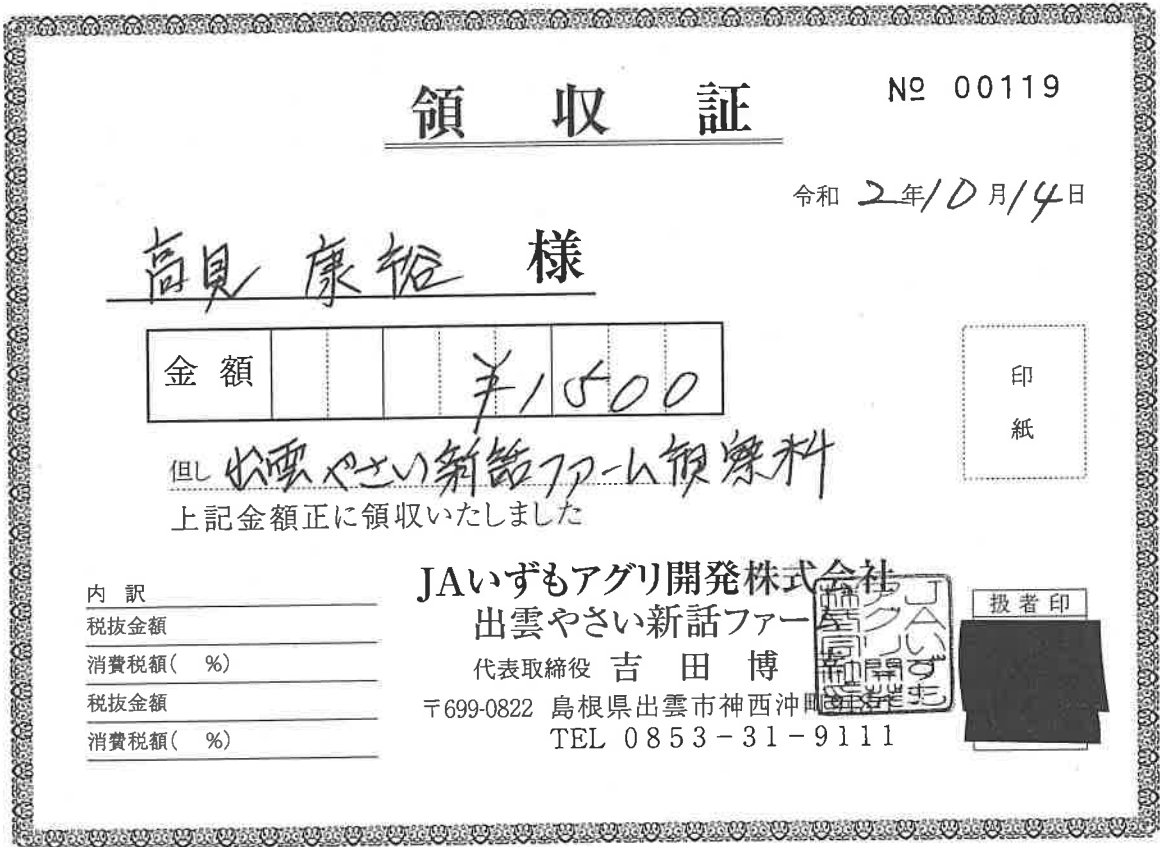 領収証
№ 00119
令和 2年10月14日
高見 康裕 様
金額 ¥1500
但し 出雲やさい新話ファーム視察料
上記金額正に領収いたしました
印紙
内訳
税抜金額
消費税額( %)
税抜金額
消費税額( %)
JAいずもアグリ開発株式会社
出雲やさい新話ファーム
代表取締役 吉田博
〒699-0822 島根県出雲市神西沖町
TEL 0853-31-9111
扱者印